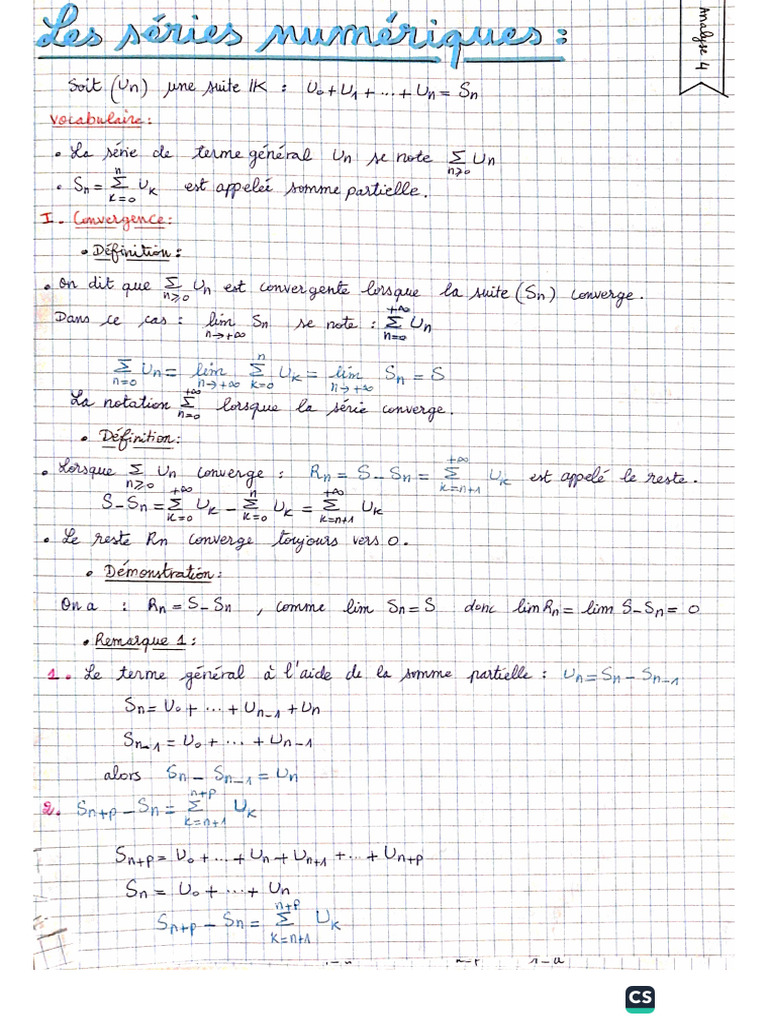 Les séries numériques :
Analyse 4
Soit (Un) une suite IK : U₀+U₁+...+Un = Sn
Vocabulaire :
• La série de terme général Un se note Σ n≥0 Un
• Sn = Σ k=0 n Uk est appelée somme partielle.
I - Convergence :
• Définition :
• On dit que Σ n≥0 Un est convergente lorsque la suite (Sn) converge.
Dans ce cas : lim n→+∞ Sn se note : Σ n=0 +∞ Un
Σ n=0 Un = lim n→+∞ Σ k=0 n Uk = lim n→+∞ Sn = S
La notation Σ n=0 +∞ lorsque la série converge.
• Définition :
• Lorsque Σ n≥0 Un converge : Rn = S - Sn = Σ k=n+1 +∞ Uk est appelé le reste.
S - Sn = Σ k=0 +∞ Uk - Σ k=0 n Uk = Σ k=n+1 +∞ Uk
• Le reste Rn converge toujours vers 0.
• Démonstration :
On a : Rn = S - Sn , comme lim Sn = S donc lim Rn = lim S - Sn = 0
• Remarque 1 :
1. Le terme général à l'aide de la somme partielle : Un = Sn - Sn-1
Sn = U₀ + ... + Un-1 + Un
Sn-1 = U₀ + ... + Un-1
alors Sn - Sn-1 = Un
2. Sn+p - Sn = Σ k=n+1 n+p Uk
Sn+p = U₀ + ... + Un + Un+1 + ... + Un+p
Sn = U₀ + ... + Un
Sn+p - Sn = Σ k=n+1 n+p Uk
CS